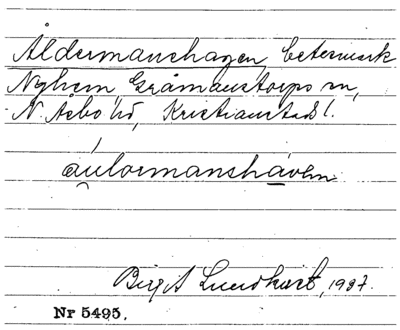 Åldermanshagen, betesmark
Nyhem, Gråmanstorps sn,
N. Åsbo hd, Kristianstads l.
Birgit Lundkvist, 1937.
Nr 5495.